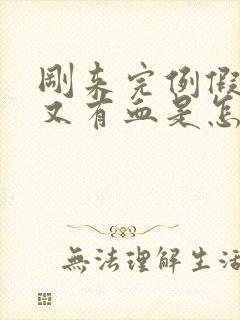 剛来完例假
又有血是怎
無法理解生活